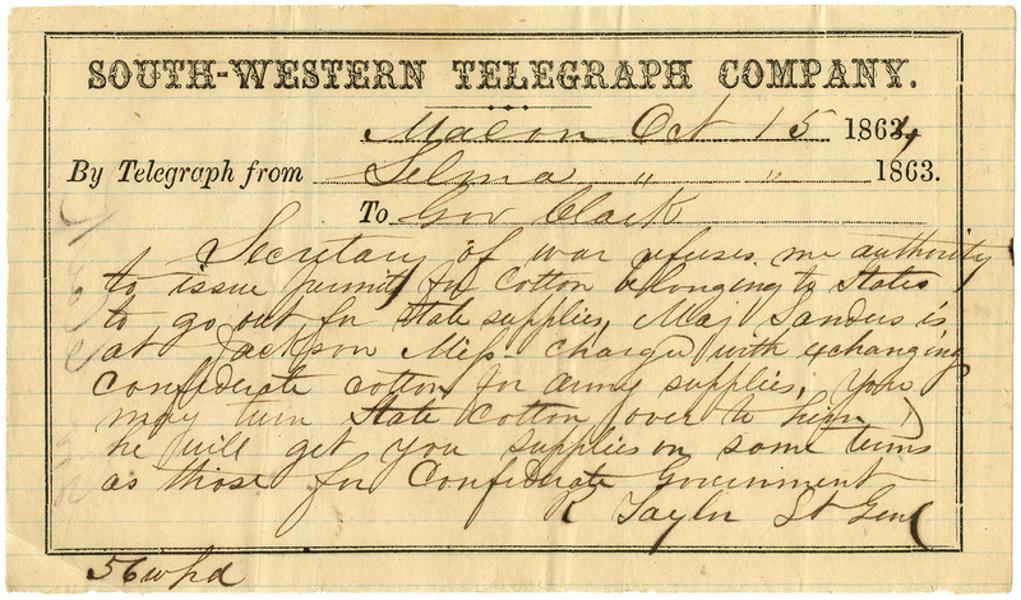 SOUTH-WESTERN TELEGRAPH COMPANY.
Macon Oct 15 1864
By Telegraph from Selma " " 1863.
To Gov Clark
Secretary of war refuses me authority
to issue permits for cotton belonging to States
to go out for State supplies, Maj Sanders is
at Jackson Miss- charged with exchanging
Confederate cotton for army supplies, You
may turn State Cotton over to him &
he will get you supplies on some terms
as those for Confederate Government
R Taylor Lt Genl
56 w pd